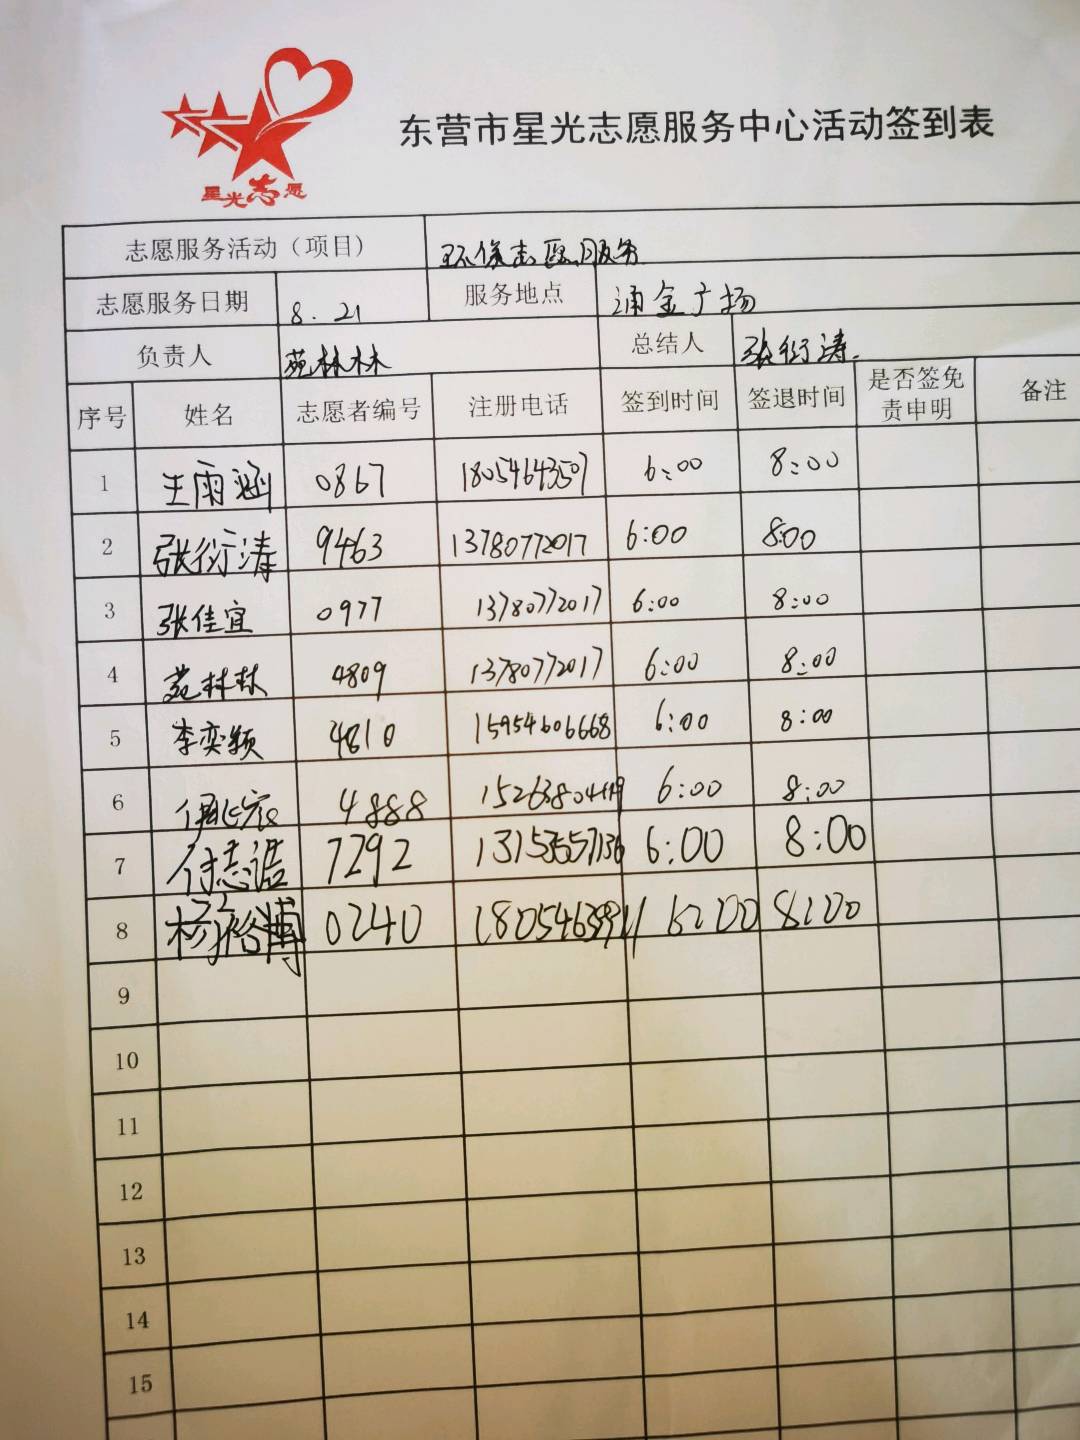 星光志愿
东营市星光志愿服务中心活动签到表
志愿服务活动（项目） 环保志愿服务
志愿服务日期 8.21 服务地点 涌金广场
负责人 苑林林 总结人 张衍涛
序号 姓名 志愿者编号 注册电话 签到时间 签退时间 是否签免责申明 备注
1 王雨涵 0867 18054643507 6:00 8:00
2 张衍涛 9463 13780772017 6:00 8:00
3 张佳宜 0977 13780772017 6:00 8:00
4 苑林林 4809 13780772017 6:00 8:00
5 李奕颖 4810 15954606668 6:00 8:00
6 4888 6:00 8:00
7 付志诺 7292 6:00 8:00
8 杨裕博 0240 6:00 8:00
9
10
11
12
13
14
15